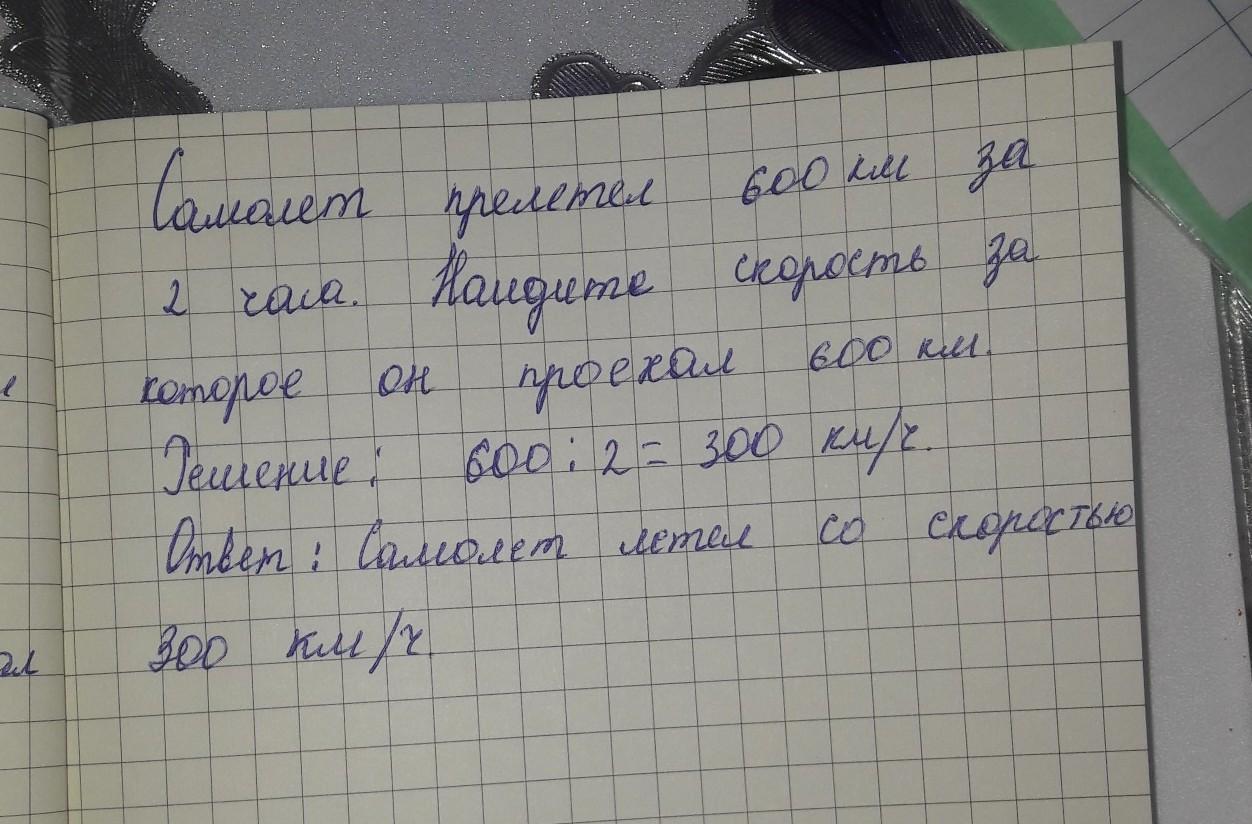 Самолет прелетел 600 км за
2 часа. Наидите скорость за
которое он проехал 600 км.
Решение: 600 : 2 = 300 км/ч.
Ответ: Самолет летел со скоростью
300 км/ч.